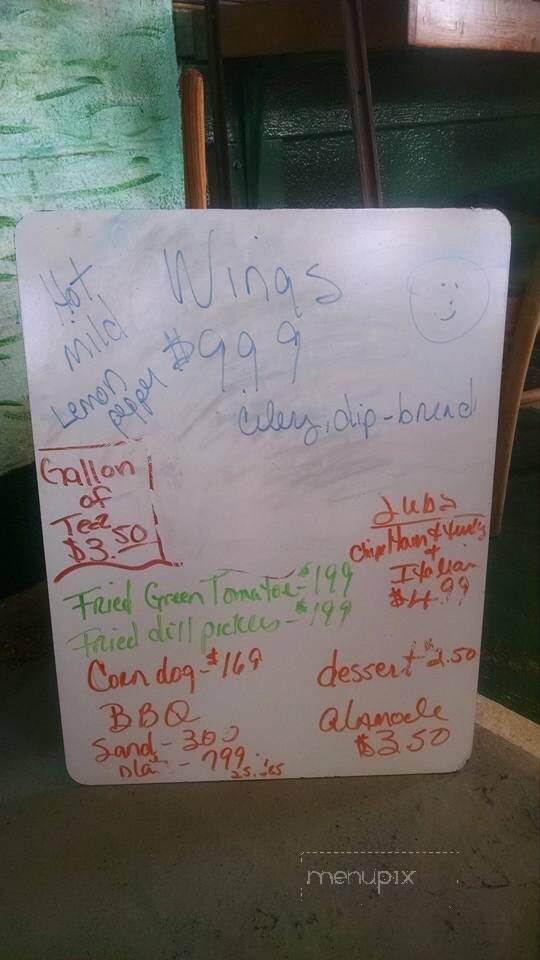 Wings
Hot
mild
Lemon
peppy
$9.99
Celery, dip-bread
Gallon
of
Tea
$3.50
Subs
Chips Ham & turkey
+
Italian
$4.99
Fried Green Tomatoe-$199
Fried dill pickles-$199
Corn dog-$169
BBQ
Sand-300
Pla - 799
2 Sides
dessert $2.50
Alamode
$3.50
menupix